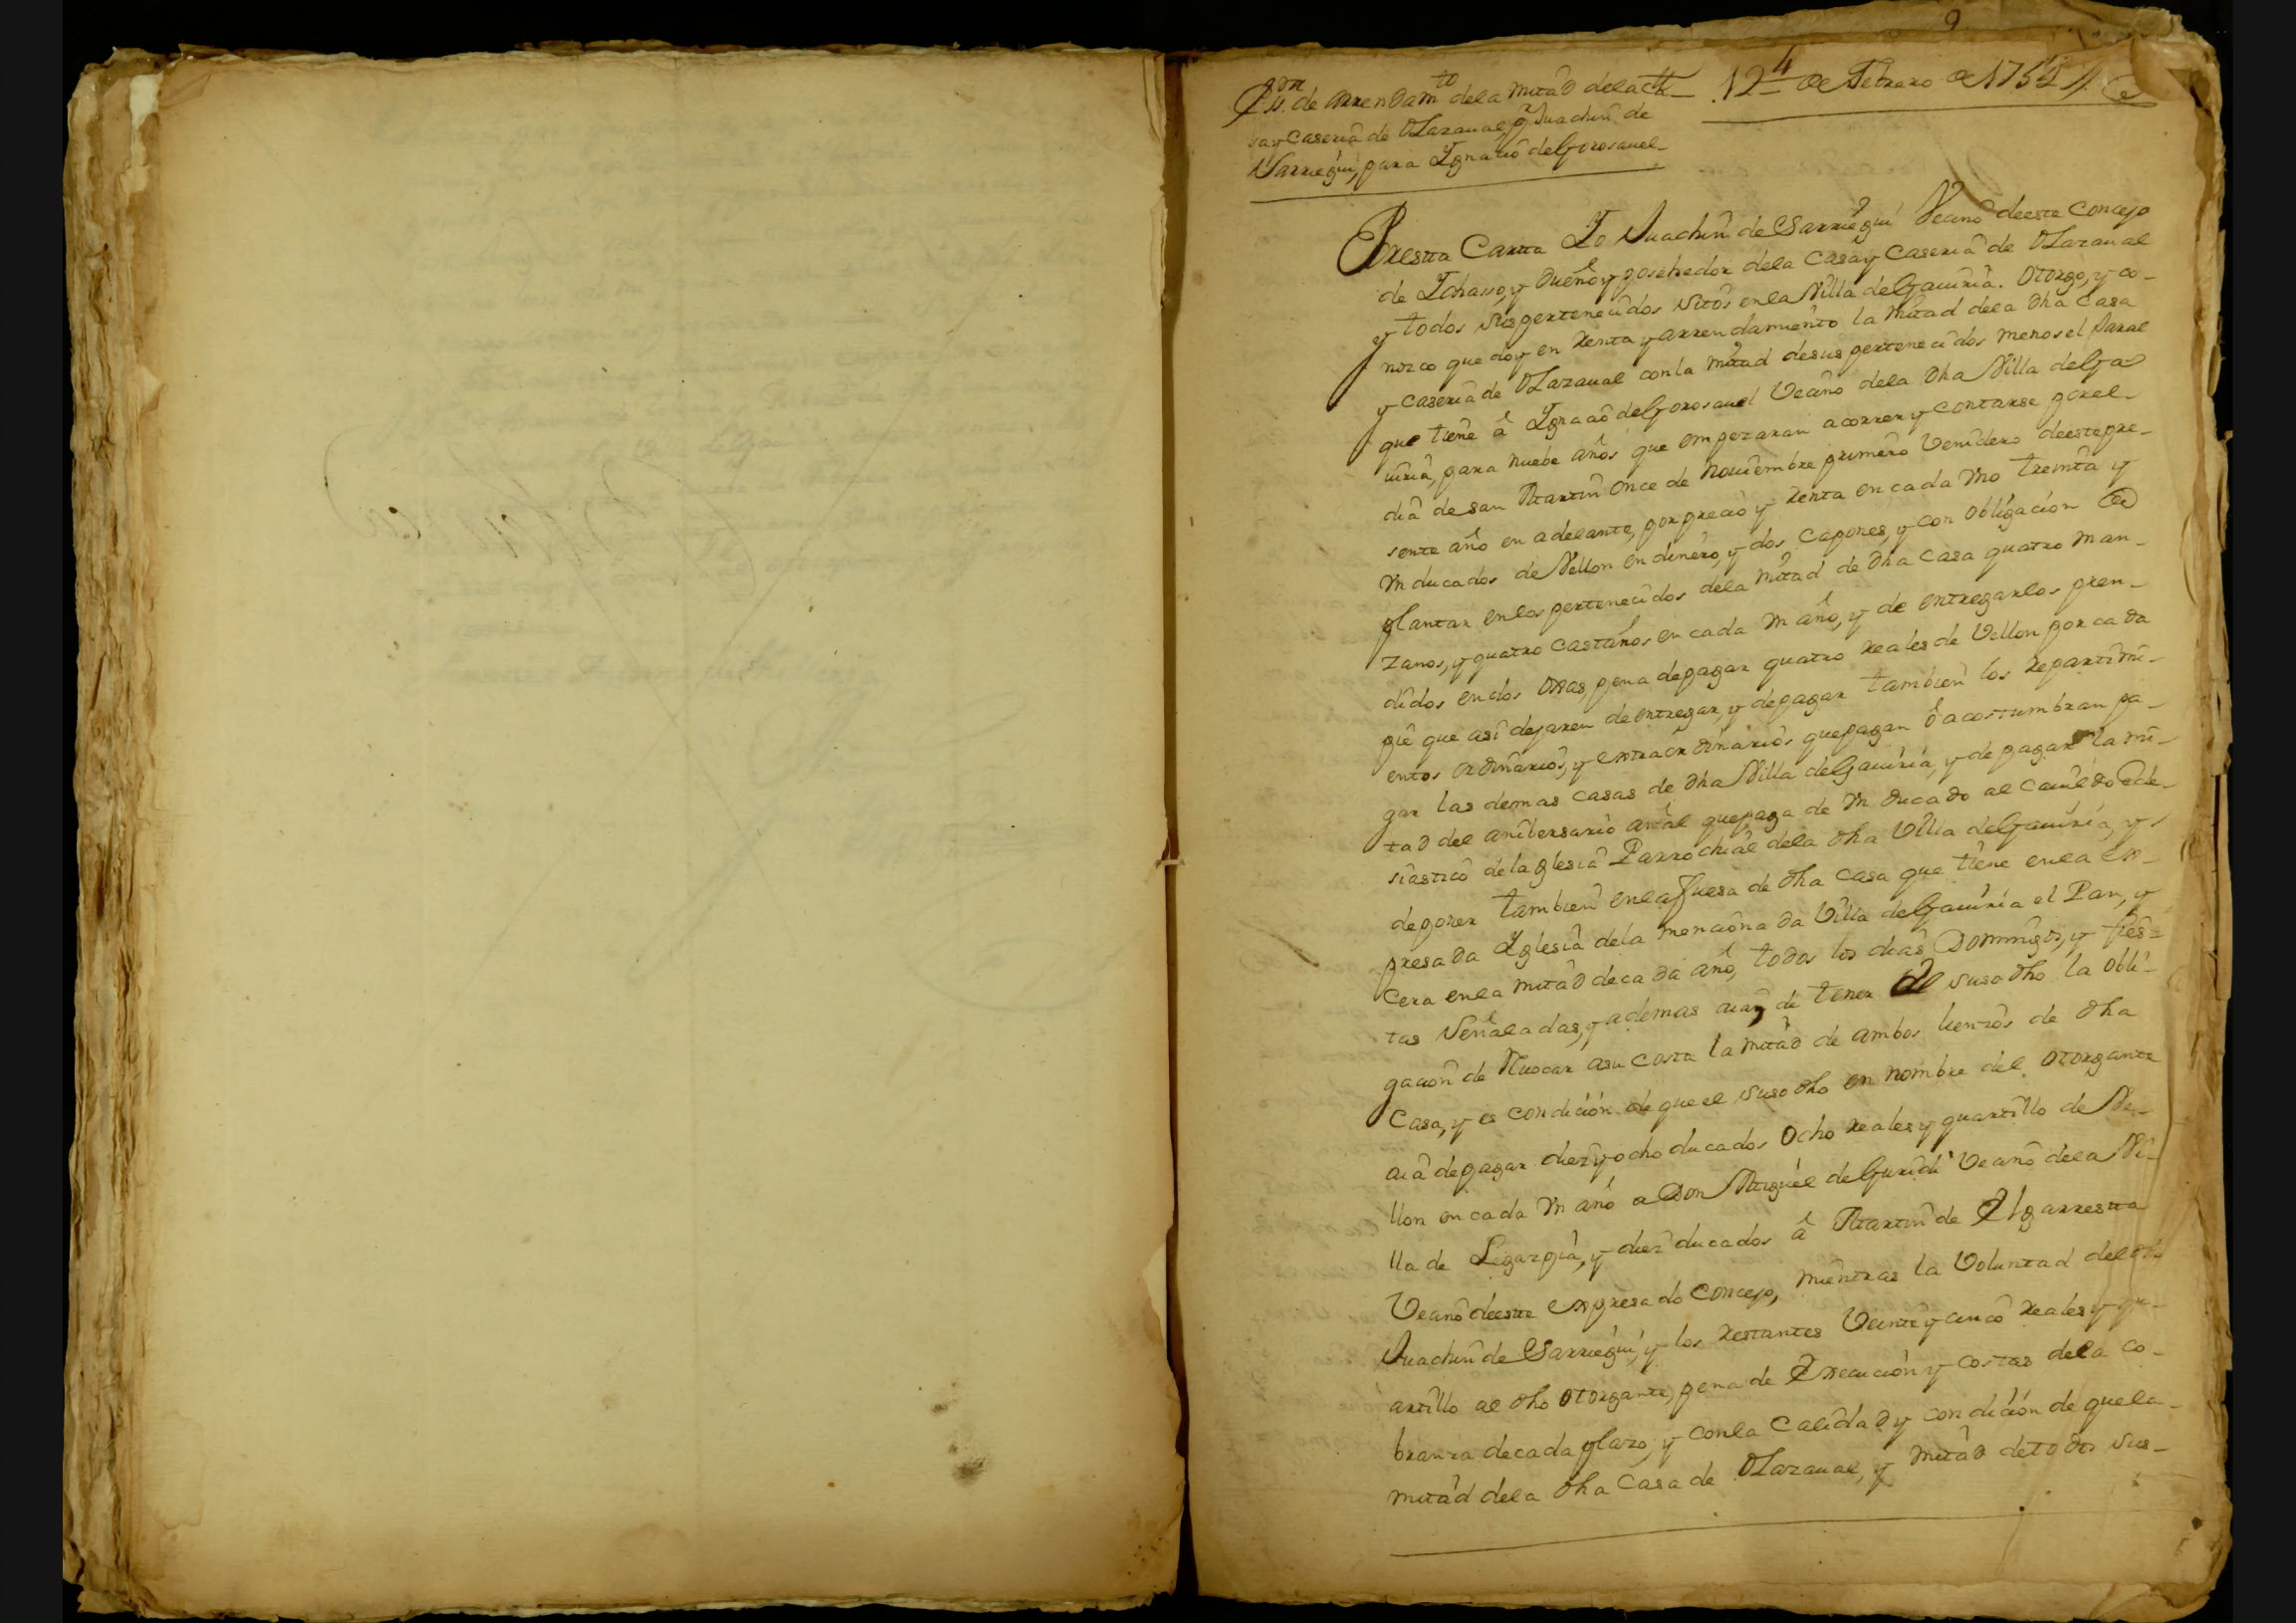 9
Ess.on de Arrendam.to dela mitad dela ca-
sa y Caseria de Olazaual p.r Juachin de
Sarriegui, para Ignacio de Gorosauel
12 de Febrero de 1754
Por esta Carta Yo Juachin de Sarriegui Vecino de este Concejo
de Ichasso, y dueño y posehedor dela Casa y Caseria de Olazaual
y todos sus pertenecidos sitos en la Villa de Gauiria. Otorgo, y co-
nozco que doy en Renta y arrendamiento la mitad dela dha Casa
y Caseria de Olazaual con la mitad de sus pertenecidos menos el Jaral
que tiene â Ignacio de Gorosauel Vecino dela dha Villa de Ga-
uiria, para nuebe años que empezaran a correr y contarse por el
dia de san Martin once de Nouiembre primero Venidero de este pre-
sente año en adelante, por precio y Renta en cada Vno treinta y
Vn ducados de Vellon en dinero, y dos Capones, y con obligacion de
plantar en los pertenecidos dela mitad de dha Casa quatro man-
zanos, y quatro castaños en cada Vn año, y de entregarlos pren-
didos en dos oxas, pena de pagar quatro Reales de Vellon por cada
pie que asi dejaren de entregar, y de pagar tambien los Repartimi-
entos ordinarios, y extraordinarios que pagan ô acostumbran pa-
gar las demas casas de dha Villa de Gauiria, y de pagar la mi-
tad del anibersario anûal que paga de Vn ducado al Cauildo Ecle-
siastico dela Yglesia Parrochial dela dha Villa de Gauiria, y
de poner tambien en la fuesa de dha Casa que tiene en la Ex-
presada Yglesia dela mencionada Villa de Gauiria el Pan, y
Cera en la mitad de cada año, todos los dias Domingos, y fies-
tas Señaladas, y ademas aia de tener el susodho la obli-
gacion de Truocar a su costa la mitad de ambos lienzos de dha
Casa, y es condicion de que el susodho en nombre del otorgante
aia de pagar diez y ocho ducados Ocho Reales y quartillo de Ve-
llon en cada Vn año a Don Miguel de Guridi Vecino dela Vi-
lla de Legazpia, y diez ducados â Martin de Algarresta
Vecino de este expresado Concejo, mientras la Voluntad del dho
Juachin de Sarriegui, y los Restantes Veinte y cinco Reales y qu-
artillo al dho otorgante, pena de Execucion y costas dela co-
branza de cada plazo, y con la Calidad y condicion de que la
mitad dela dha Casa de Olazaual, y mitad de todos sus